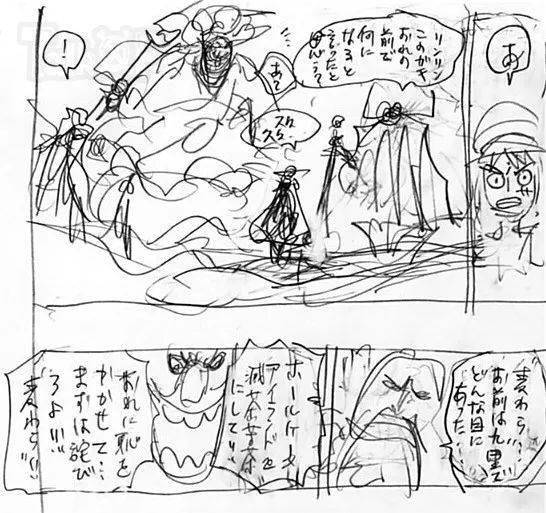 あ
リンリン
このガキ
おれの
前で
何に
なると
言ったと
思う!?
あ?
!
麦わら…!!
お前は九里で
どんな目に
あった…
ホールケーキ
アイランドを
滅茶苦茶
にして!!
おれに恥を
かかせて…
まずは詫び
ろよ!!!
麦わら!!!